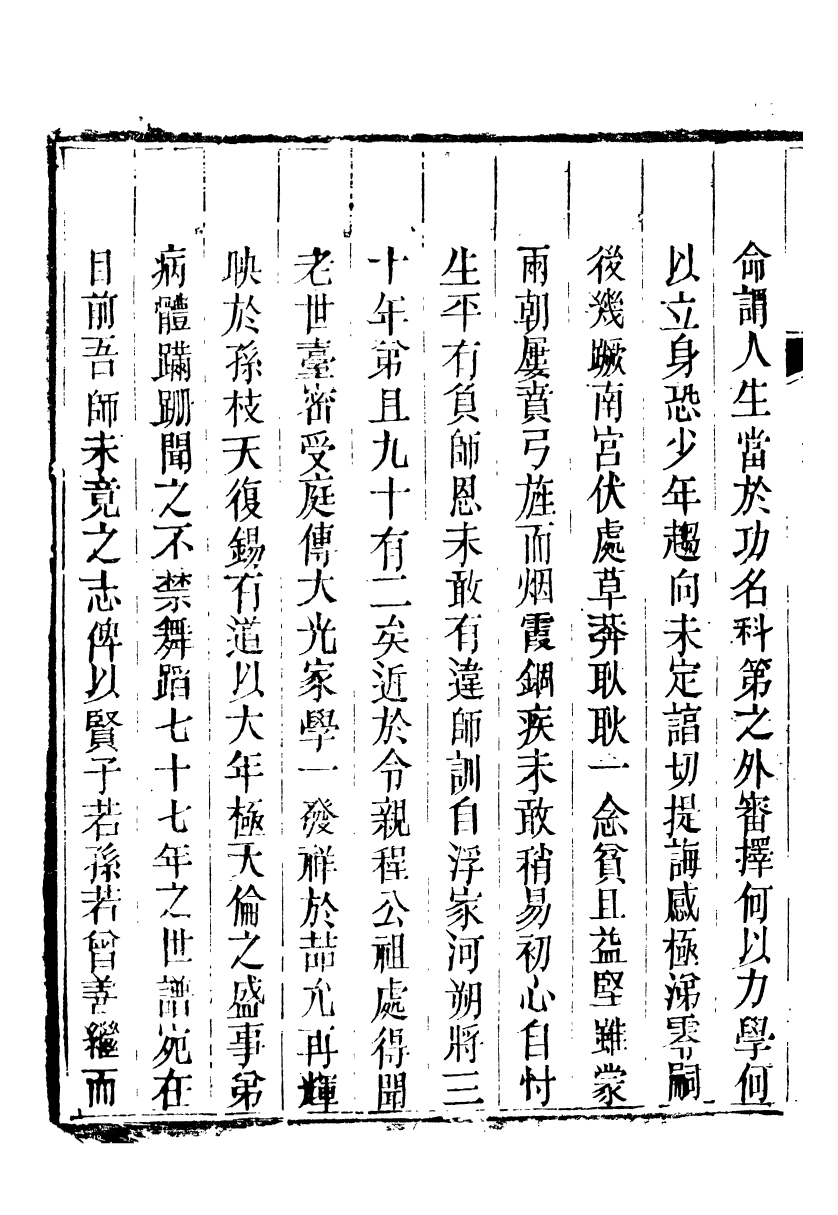 命謂人生當於功名科第之外審擇何以力學何
以立身恐少年趨向未定諄切提誨感極涕零嗣
後幾蹶南宮伏處草莽耿耿一念貧且益堅雖蒙
兩朝屢賁弓旌而烟霞錮疾未敢稍易初心自忖
生平有負師恩未敢有違師訓自浮家河朔將三
十年第且九十有二矣近於令親程公祖處得聞
老世臺密受庭傳大光家學一發祥於喆允再輝
映於孫枝天復錫有道以大年極天倫之盛事弟
病體蹣跚聞之不禁舞蹈七十七年之世譜宛在
目前吾師未竟之志俾以賢子若孫若曾善繼而